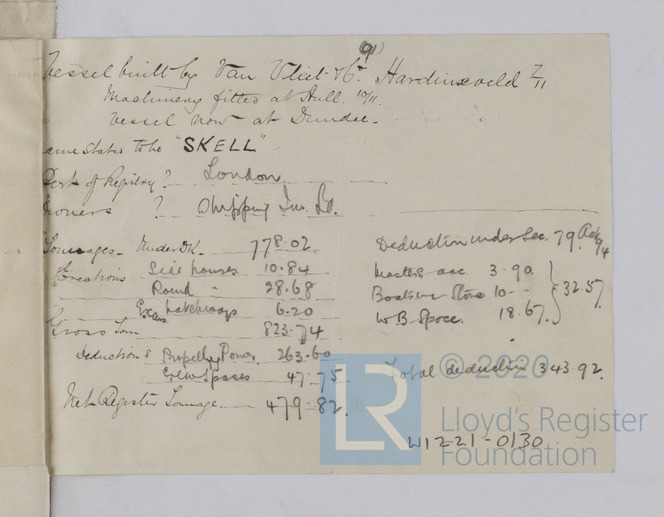 91
Vessel built by Van Vliet & Co. Hardinxveld 7/11
Machinery fitted at Hull. 10/11.
Vessel now at Dundee.
ame stated to be "SKELL"
Port of Registry? London
owners ? Shipping Inv. Ld.
Tonnages - Under DK. 778.02
Erections Side houses 10.84
Round " 28.68
Exces Hatchways 6.20
Gross Ton 823.74
Deductions Propelling Power 263.60
Crew Spaces 47.75
Net Register Tonnage 479.82
Deduction under Sec. 79 Act 94
Masters acc 3.90
Boatswn Store 10 - -
W B Space. 18.67
32.57
Total deduction 343.92.
W1221-0130
© 2020
LR
Lloyd's Register
Foundation